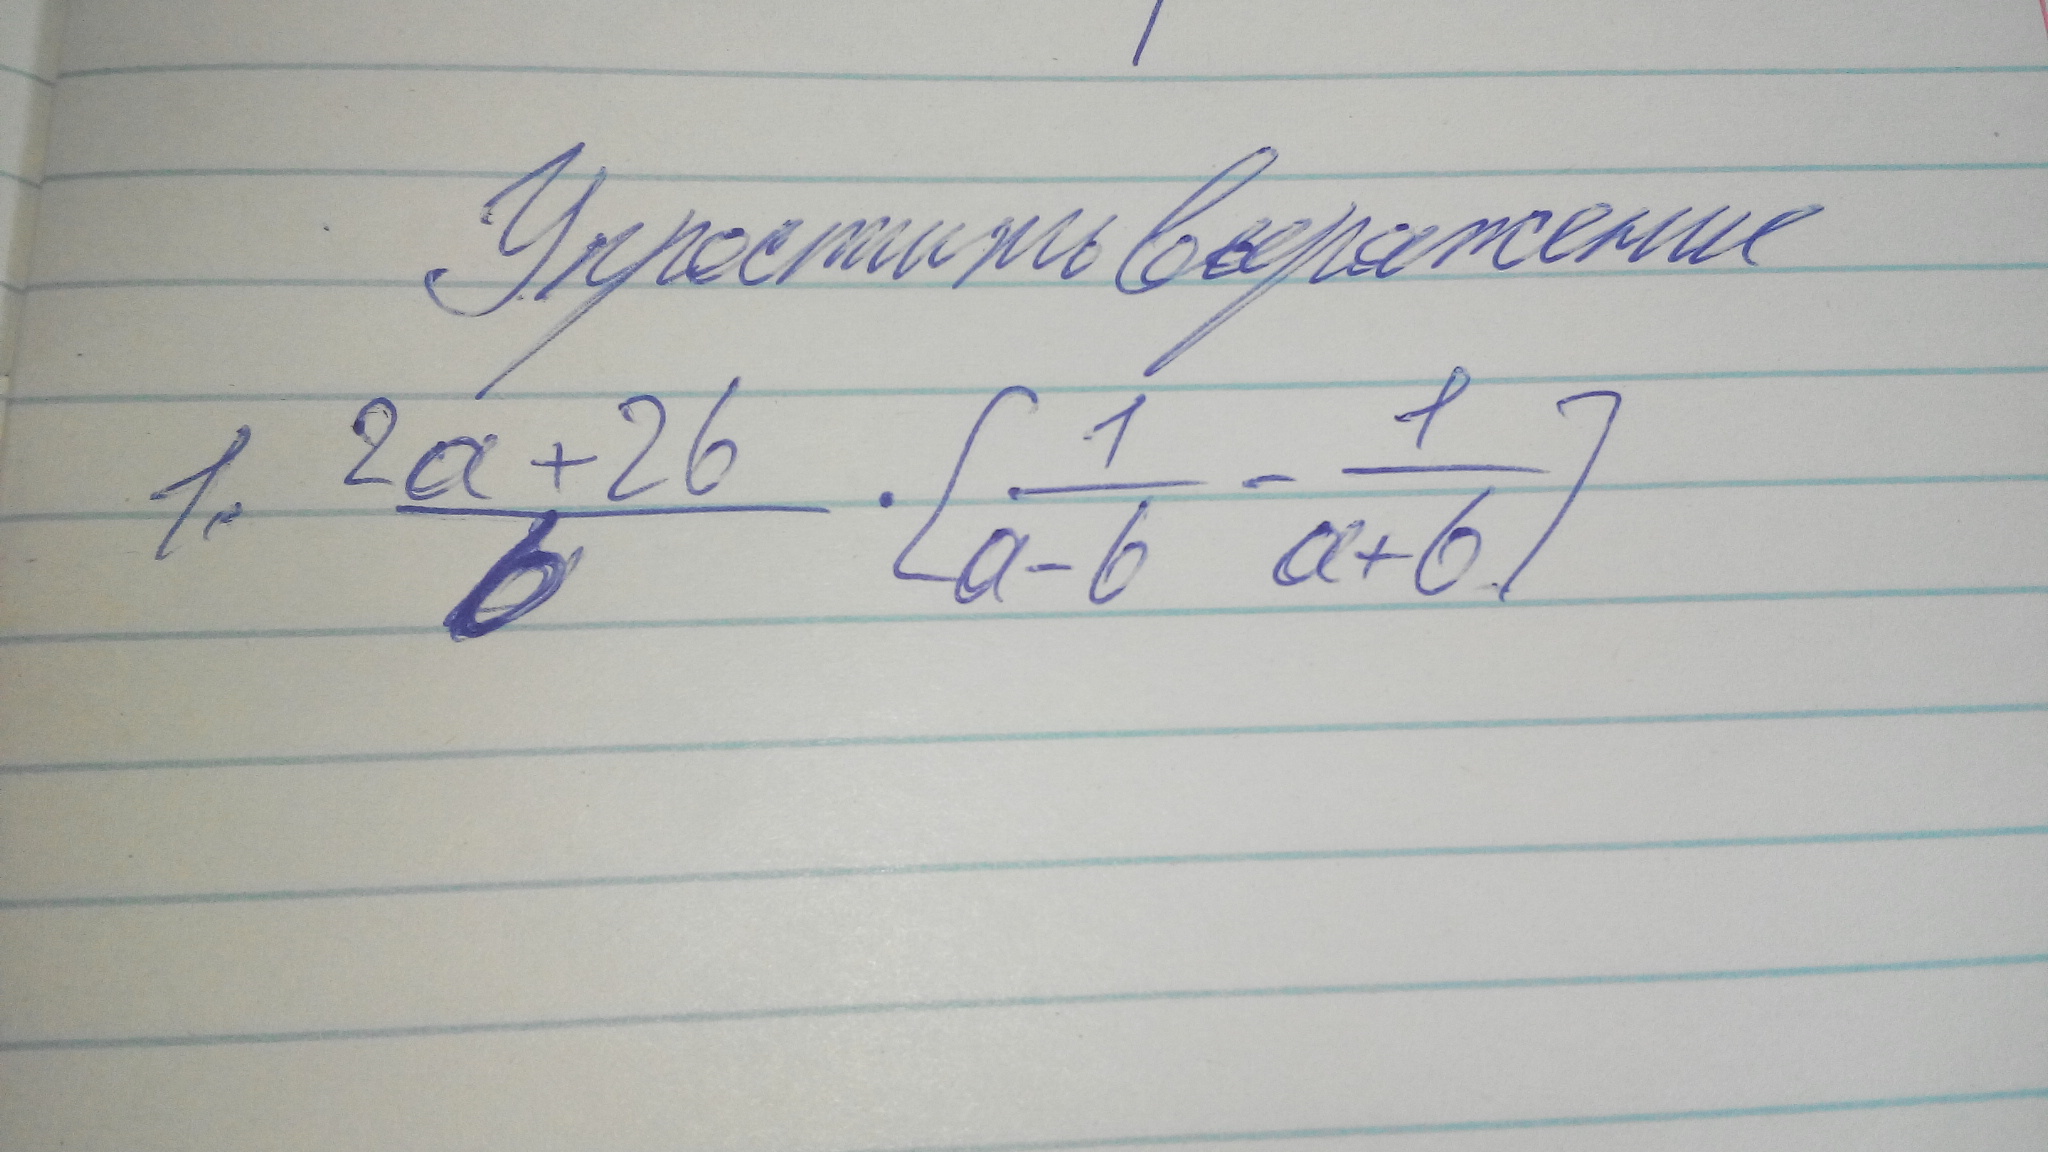 Упростить выражение
1. \frac{2a+2b}{b} \cdot \left[\frac{1}{a-b} - \frac{1}{a+b}\right]